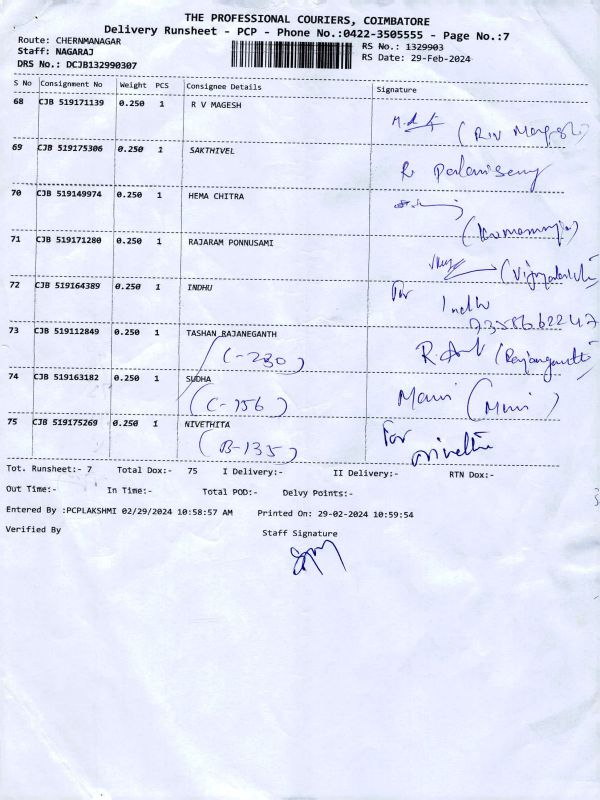 THE PROFESSIONAL COURIERS, COIMBATORE
Delivery Runsheet - PCP - Phone No.:0422-3505555 - Page No.:7
Route: CHERNMANAGAR
Staff: NAGARAJ
DRS No.: DCJB132990307
RS No.: 1329903
RS Date: 29-Feb-2024
S No Consignment No Weight PCS Consignee Details Signature
68 CJB 519171139 0.250 1 R V MAGESH
69 CJB 519175306 0.250 1 SAKTHIVEL
R. Palanisamy
70 CJB 519149974 0.250 1 HEMA CHITRA
71 CJB 519171280 0.250 1 RAJARAM PONNUSAMI
72 CJB 519164389 0.250 1 INDHU
For Indhu
73 CJB 519112849 0.250 1 TASHAN RAJANEGANTH
(C-230)
74 CJB 519163182 0.250 1 SUDHA
(C-156)
Mani (Mani)
75 CJB 519175269 0.250 1 NIVETHITA
(B-135)
For
Tot. Runsheet:- 7 Total Dox:- 75 I Delivery:- II Delivery:- RTN Dox:-
Out Time:- In Time:- Total POD:- Delvy Points:-
Entered By :PCPLAKSHMI 02/29/2024 10:58:57 AM Printed On: 29-02-2024 10:59:54
Verified By Staff Signature